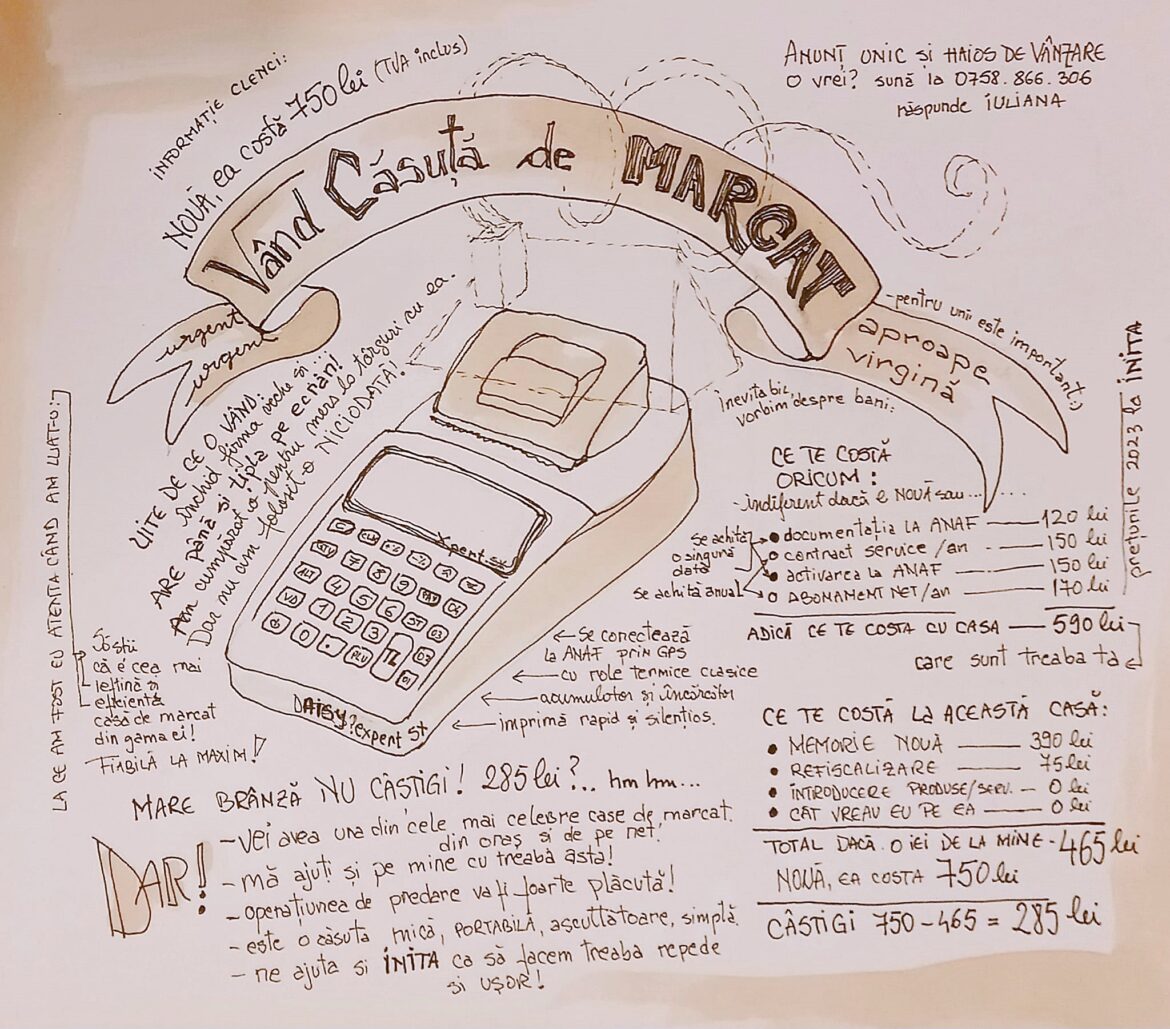 INFORMAȚIE CLENCI:
NOUĂ, ea costă 750 lei (TVA inclus)
ANUNȚ UNIC și HAIOS DE VÂNZARE
O vrei? sună la 0758.866.306
răspunde IULIANA
Vând Căsuță de MARCAT
urgent
urgent
- pentru unii este important:)
aproape
virgină
UITE DE CE O VÂND:
închid firma veche și...
ARE până și țipla pe ecran!
Am cumpărat-o pentru mers la târguri cu ea.
Dar nu am folosit-o NICIODATĂ!
Inevitabil,
vorbim despre bani:
prețurile 2023 la INITA
CE TE COSTĂ
ORICUM:
- indiferent dacă e NOUĂ sau.........
se achită
o singură
dată
se achită anual
documentația LA ANAF — 120 lei
contract service /an — 150 lei
activarea la ANAF — 150 lei
ABONAMENT NET/an — 170 lei
ADICĂ CE TE COSTA CU CASA — 590 lei
care sunt treaba ta
LA CE AM FOST EU ATENTĂ CÂND AM LUAT-O:
Să știi
că e cea mai
ieftină și
eficientă
casă de marcat
din gama ei!
FIABILĂ LA MAXIM!
Xpert sx
7 8 9
4 5 6
1 2 3
0 . PLU TL
DAISY? expert SX
← Se conectează
la ANAF prin GPS
← cu role termice clasice
← acumulator și încărcător
← imprimă rapid și silențios.
CE TE COSTĂ LA ACEASTĂ CASĂ:
• MEMORIE NOUĂ — 390 lei
• REFISCALIZARE — 75 lei
• INTRODUCERE PRODUSE/SERV. — 0 lei
• CÂT VREAU EU PE EA — 0 lei
TOTAL DACĂ O IEI DE LA MINE - 465 lei
NOUĂ, EA COSTA 750 lei
CÂSTIGI 750 - 465 = 285 lei
MARE BRÂNZĂ NU CÂSTIGI! 285 lei?... hm hm...
DAR!
- Vei avea una din cele mai celebre case de marcat.
din oraș și de pe net,
- Mă ajuți și pe mine cu treaba asta!
- operațiunea de predare va fi foarte plăcută!
- este o căsuta mică, PORTABILĂ, ascultătoare, simplă.
- ne ajuta si INITA ca să facem treaba repede
și UȘOR!